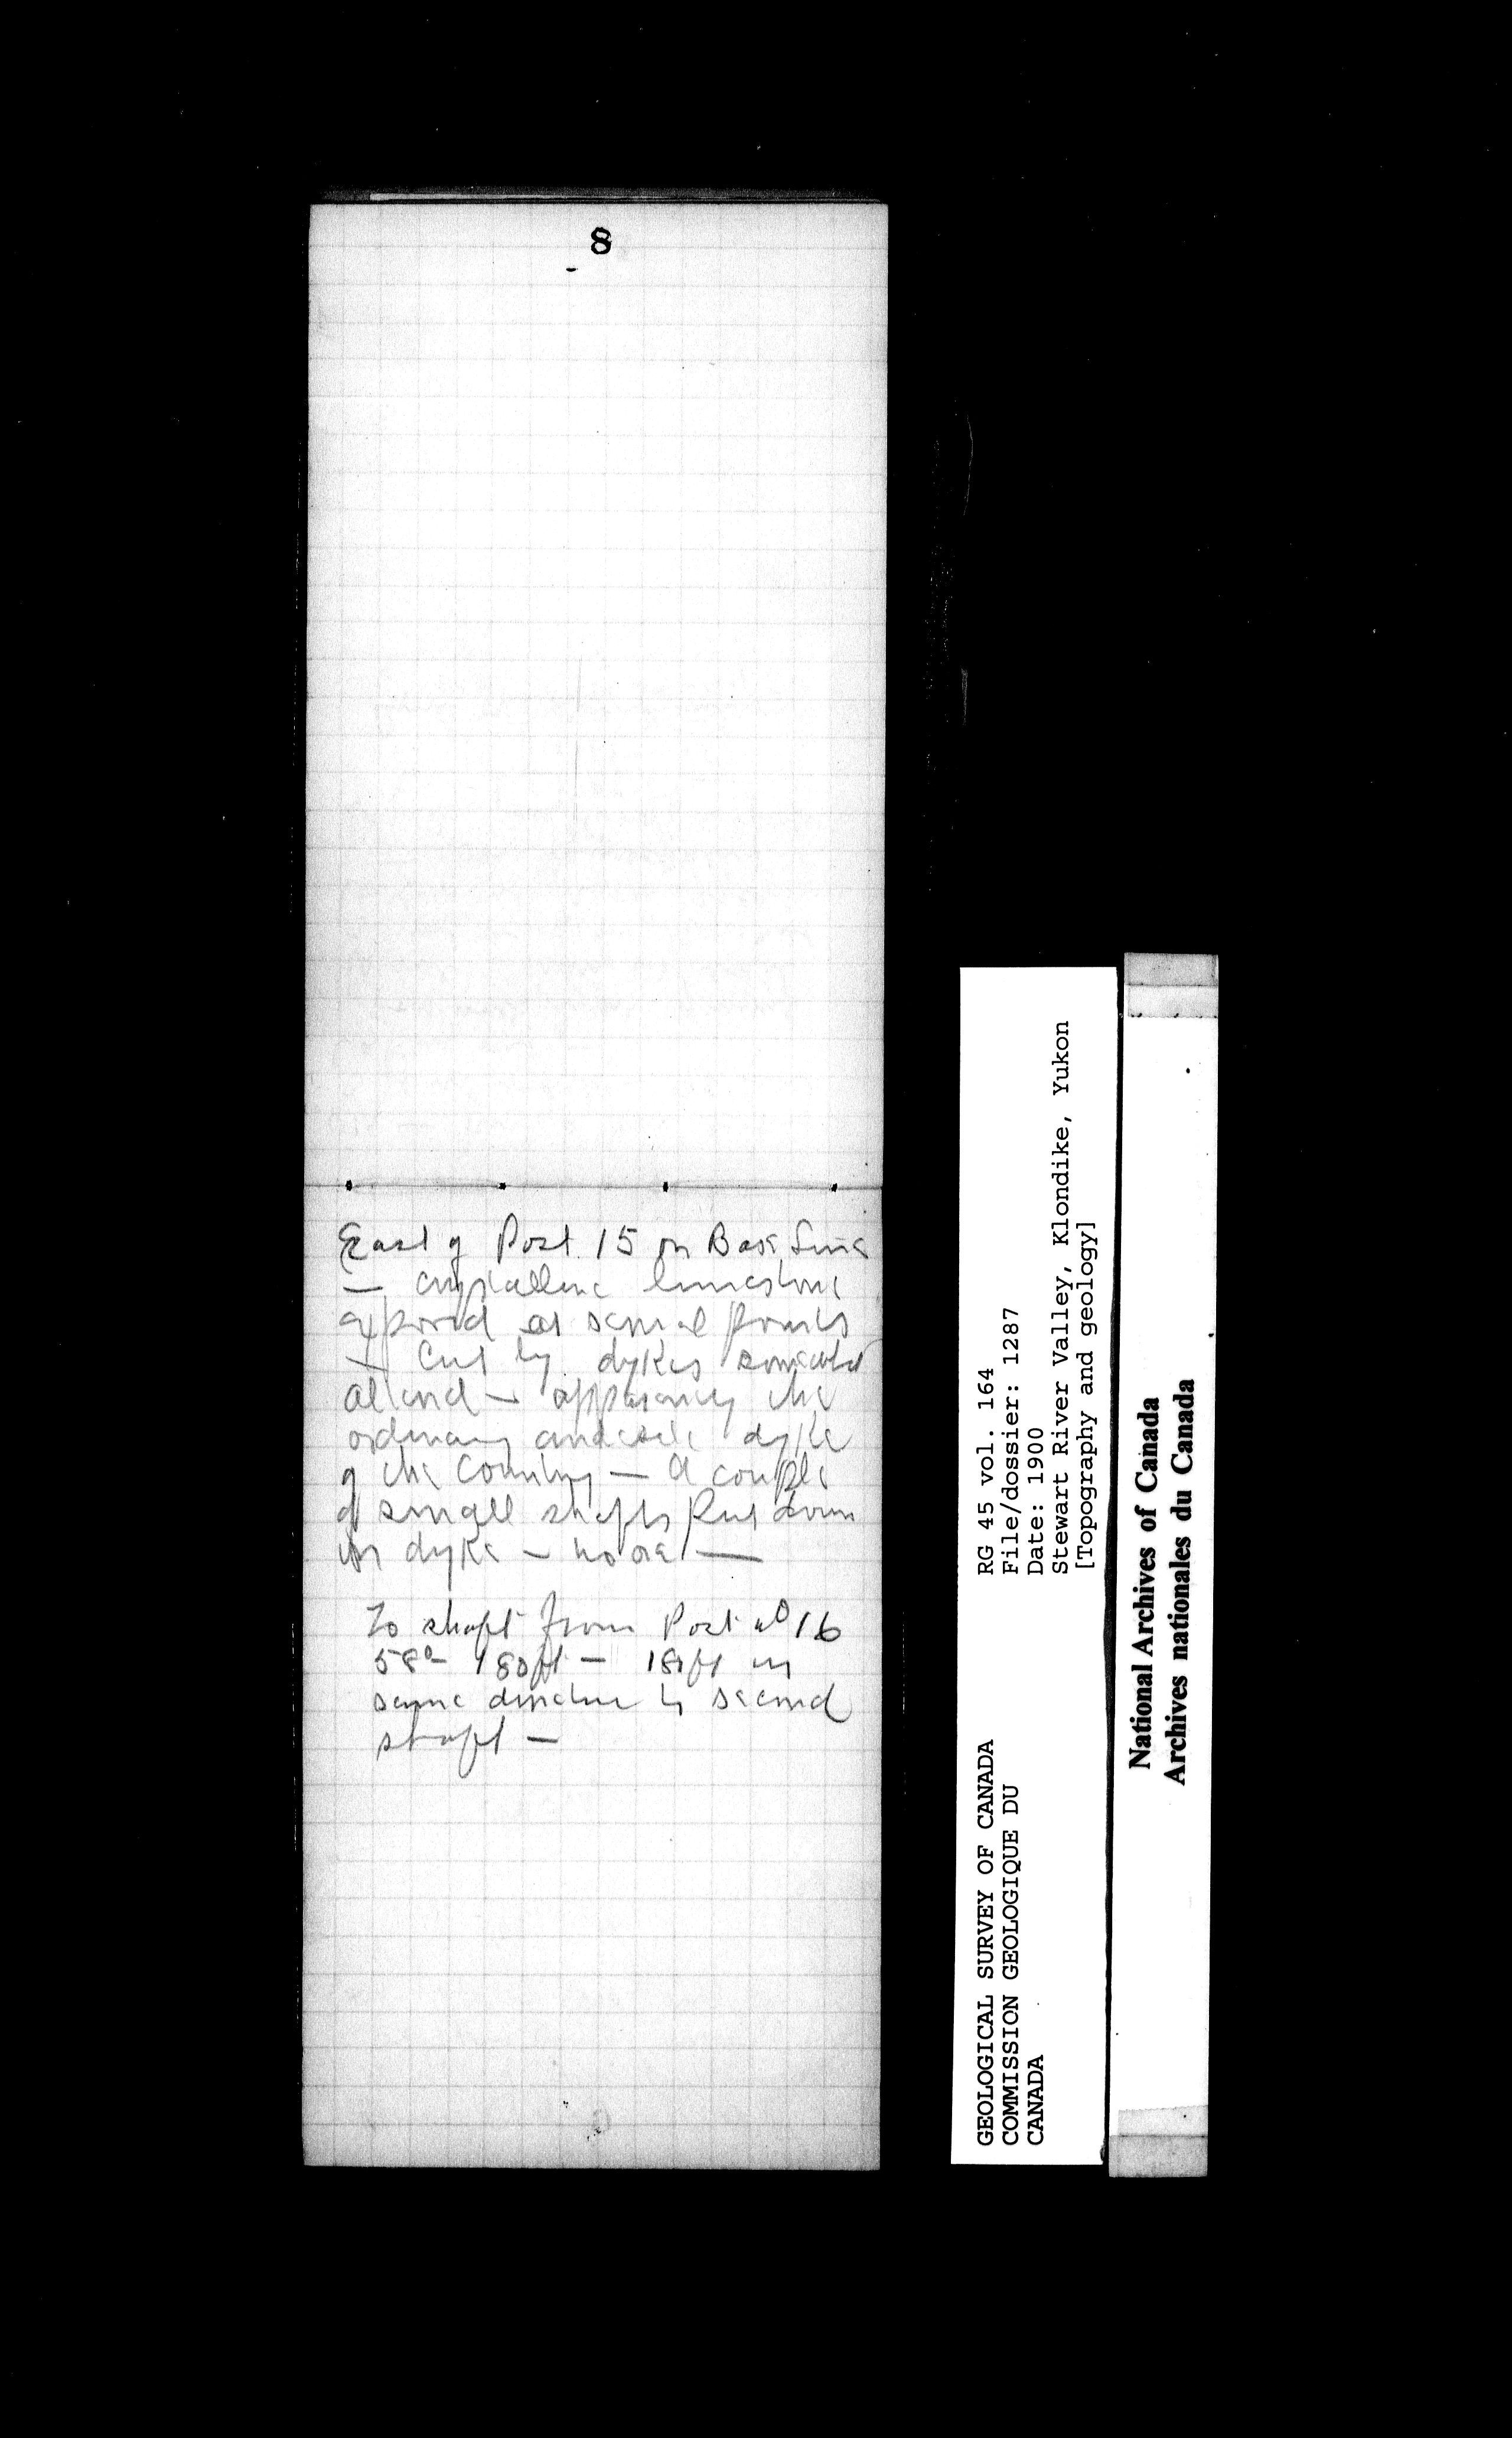 8
East of Post 15 on Base Line
— crystalline limestone
exposed at several points
— Cut by dykes somewhat
altered — apparently the
ordinary andesite dyke
of the Country — A couple
of small shafts put down
on dyke — no ore —
To shaft from Post No 16
58° 180ft — 181ft in
same direction to second
shaft —
GEOLOGICAL SURVEY OF CANADA
COMMISSION GEOLOGIQUE DU
CANADA
RG 45 vol. 164
File/dossier: 1287
Date: 1900
Stewart River Valley, Klondike, Yukon
[Topography and geology]
National Archives of Canada
Archives nationales du Canada